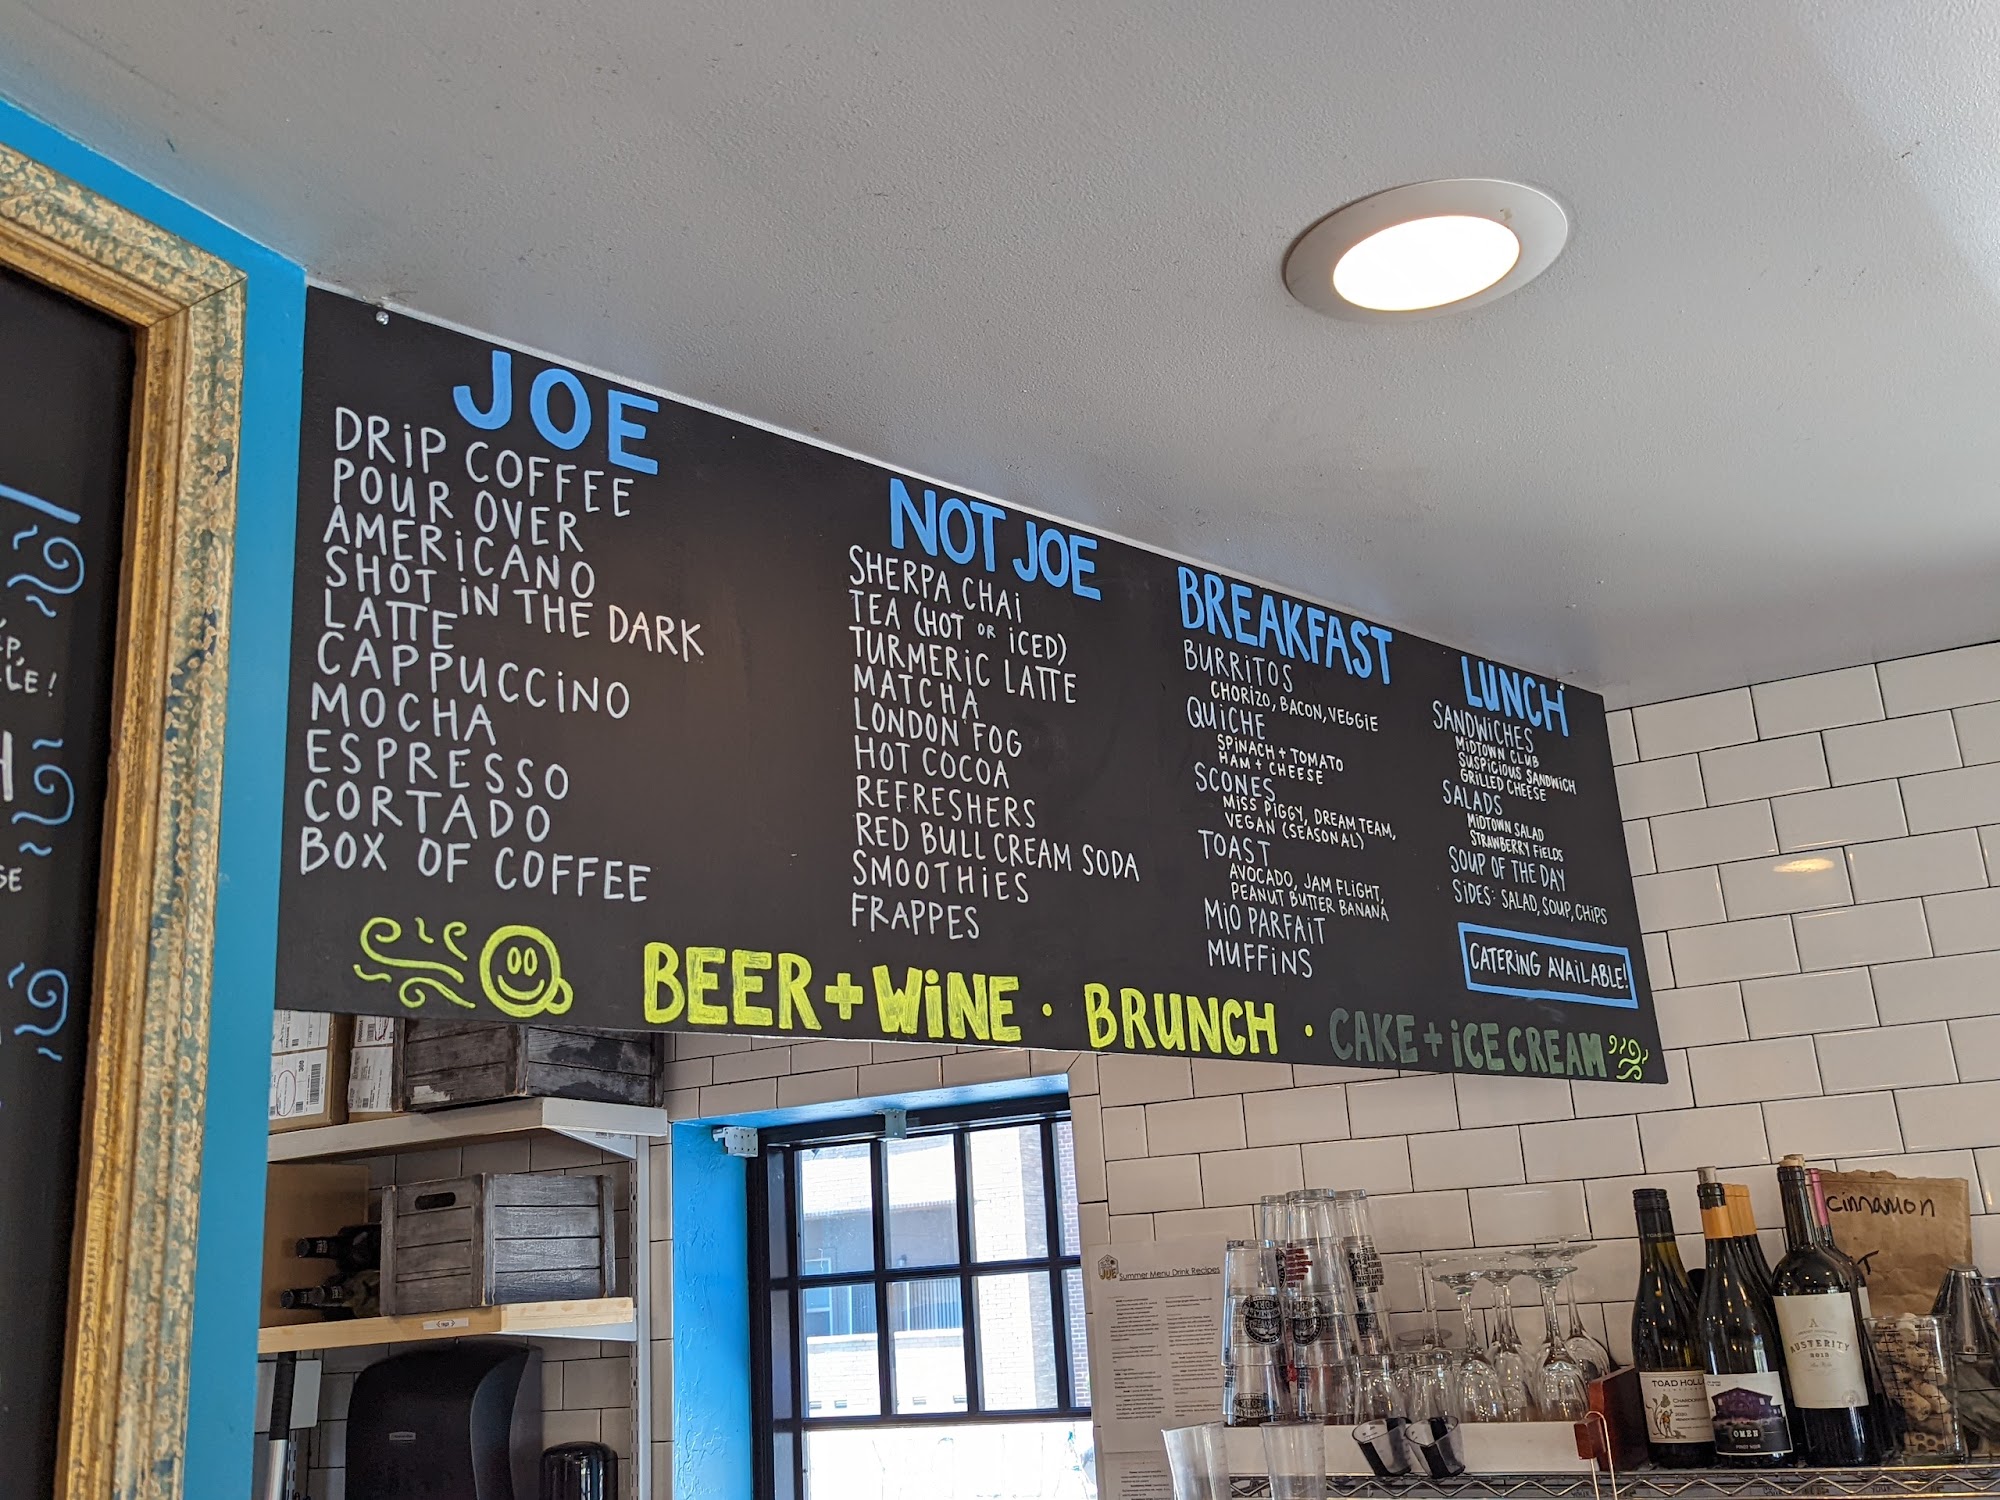 JOE
DRiP COFFEE
POUR OVER
AMERiCANO
SHOT iN THE DARK
LATTE
CAPPUCCiNO
MOCHA
ESPRESSO
CORTADO
BOX OF COFFEE
NOT JOE
SHERPA CHAi
TEA (HOT OR iCED)
TURMERiC LATTE
MATCHA
LONDON FOG
HOT COCOA
REFRESHERS
RED BULL CREAM SODA
SMOOTHiES
FRAPPES
BREAKFAST
BURRiTOS
CHORiZO, BACON, VEGGiE
QUiCHE
SPiNACH + TOMATO
HAM + CHEESE
SCONES
MiSS PiGGY, DREAM TEAM,
VEGAN (SEASONAL)
TOAST
AVOCADO, JAM FLiGHT,
PEANUT BUTTER BANANA
MiO PARFAiT
MUFFiNS
LUNCH
SANDWiCHES
MiDTOWN CLUB
SUSPiCiOUS SANDWiCH
GRiLLED CHEESE
SALADS
MiDTOWN SALAD
STRAWBERRY FiELDS
SOUP OF THE DAY
SiDES: SALAD, SOUP, CHiPS
CATERiNG AVAiLABLE!
BEER + WiNE · BRUNCH · CAKE + iCE CREAM
LE!
JOE
Summer Menu Drink Recipes
cinnamon
TOAD HOLL
CHARDONNAY
OMEN
PINOT NOIR
A
AUSTERITY